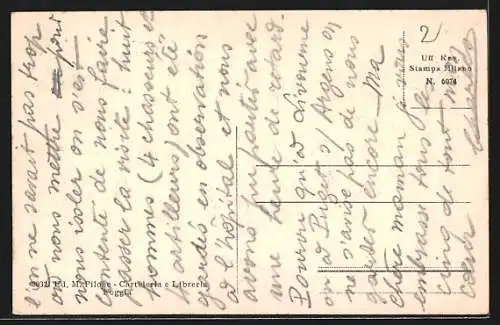 l'on ne savait pas trop
où nous mettre pour
nous isoler on s'est
contenté de nous faire
passer la visite : huit
hommes (4 chasseurs et
4 artilleurs) ont été
gardés en observation
à l'hôpital et nous
avons pu partir avec
une heure de retard.
Pourvu qu'à Livourne
ou à Puget s/ Argens on
ne s'avise pas de nous
garder encore. Ma
chère maman je
embrasse tous les
cinq de tout
coeur
2
Uff. Rev.
Stampa Milano
N. 6074
Ed. M. Pilone - Cartoleria e Libreria
Foggia